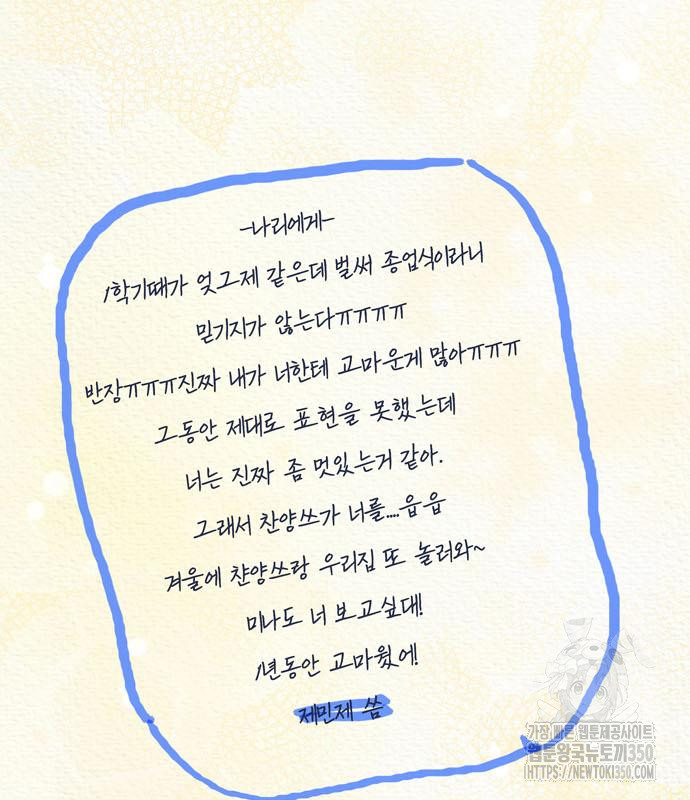 -나리에게-
1학기때가 엊그제 같은데 벌써 종업식이라니
믿기지가 않는다ㅠㅠㅠㅠ
반장ㅠㅠㅠ진짜 내가 너한테 고마운게 많아ㅠㅠㅠ
그동안 제대로 표현을 못했는데
너는 진짜 좀 멋있는거 같아.
그래서 찬양쓰가 너를....읍읍
겨울에 찬양쓰랑 우리집 또 놀러와~
미나도 너 보고싶대!
1년동안 고마웠어!
제민제 씀
가장 빠른 웹툰제공사이트
웹툰왕국뉴토끼350
HTTPS://NEWTOKI350.COM